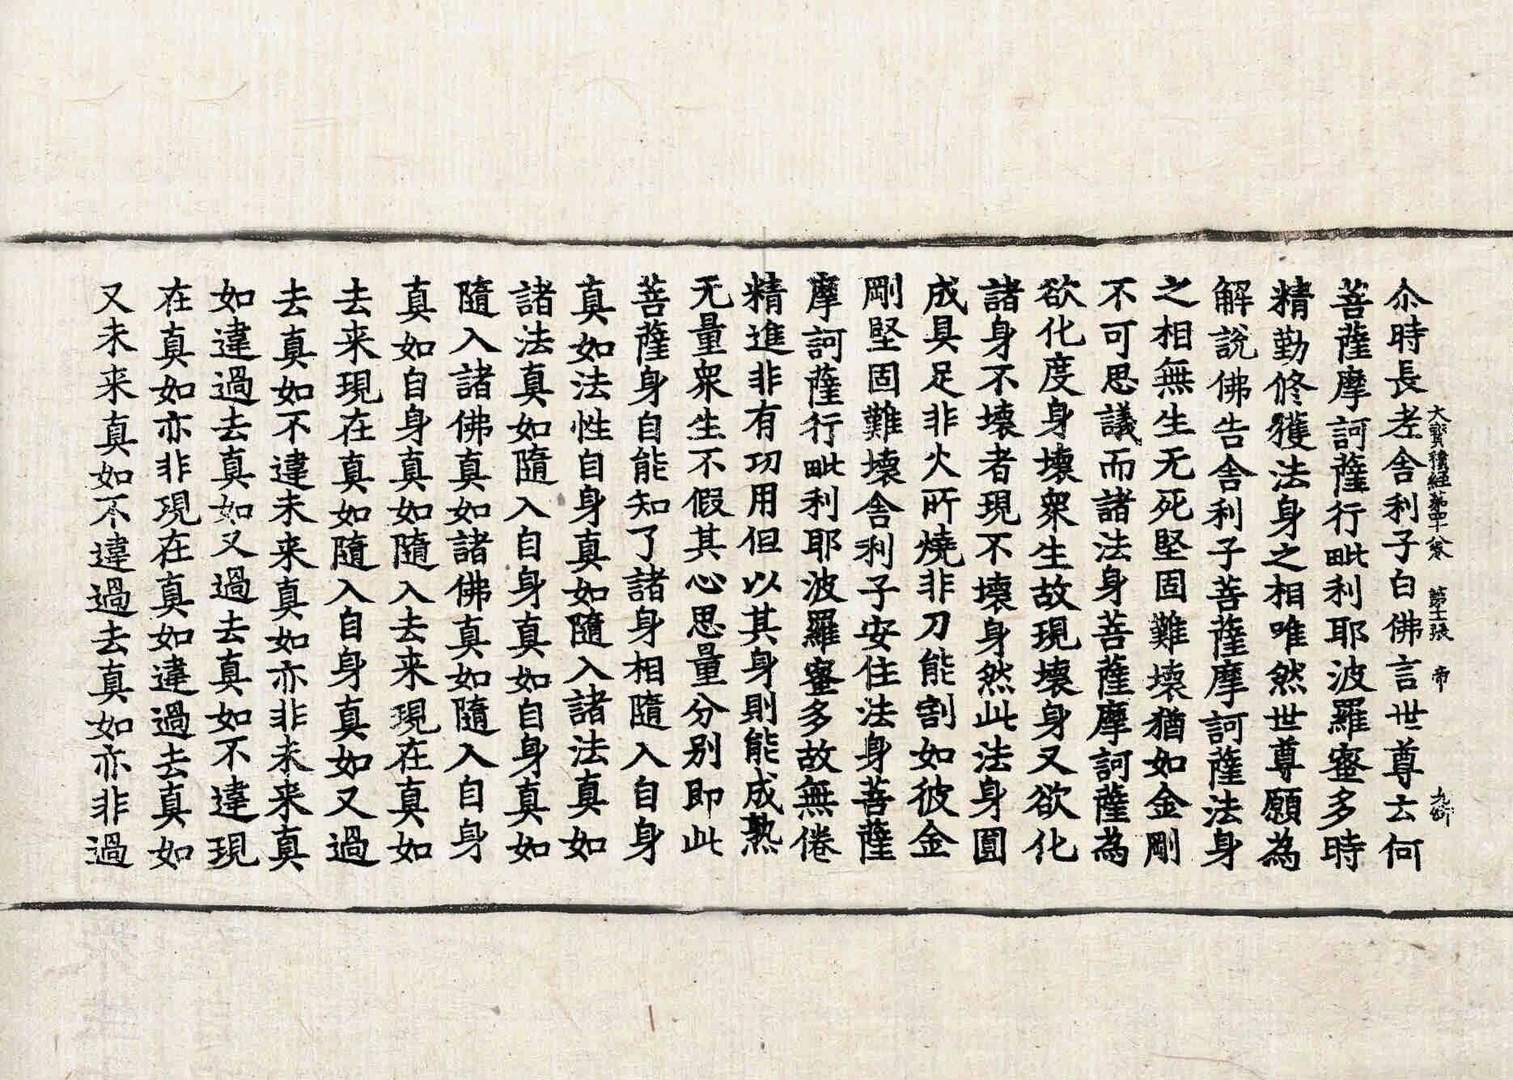 大寳積経第四十八卷 第十一張 帝
尒時長老舍利子白佛言世尊云何
菩薩摩訶薩行毗利耶波羅蜜多時
精勤修獲法身之相唯然世尊願為
解說佛告舍利子菩薩摩訶薩法身
之相無生无死堅固難壞猶如金剛
不可思議而諸法身菩薩摩訶薩為
欲化度身壞眾生故現壞身又欲化
諸身不壞者現不壞身然此法身圓
成具足非火所燒非刀能割如彼金
剛堅固難壞舍利子安住法身菩薩
摩訶薩行毗利耶波羅蜜多故無倦
精進非有功用但以其身則能成熟
无量眾生不假其心思量分別即此
菩薩身自能知了諸身相隨入自身
真如法性自身真如隨入諸法真如
諸法真如隨入自身真如自身真如
隨入諸佛真如諸佛真如隨入自身
真如自身真如隨入去来現在真如
去来現在真如隨入自身真如又過
去真如不違未来真如亦非未来真
如違過去真如又過去真如不違現
在真如亦非現在真如違過去真如
又未来真如不違過去真如亦非過